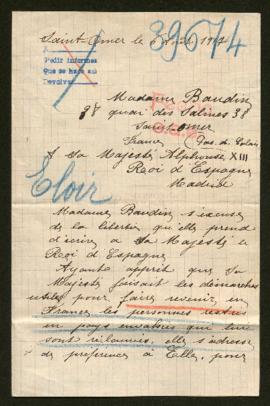 39574
Saint-Omer le 1917
A
Pedir informes
Que se haga al
Devolver
Madame Baudin
38 quai des Salines 38
Saint-Omer
France (Pas de Calais
A Sa Majesté Alphonse XIII
Roi d'Espagne
Madrid
Eloir
Madame Baudin s'excuse
de la liberté qu'elle prend
d'écrire à Sa Majesté le
Roi d'Espagne
Ayant appris que Sa
Majesté faisait les démarches
utiles pour faire revenir en
France les personnes restées
en pays envahis qui leur
sont réclamées, elle s'adresse
de préférence à Elle, pour